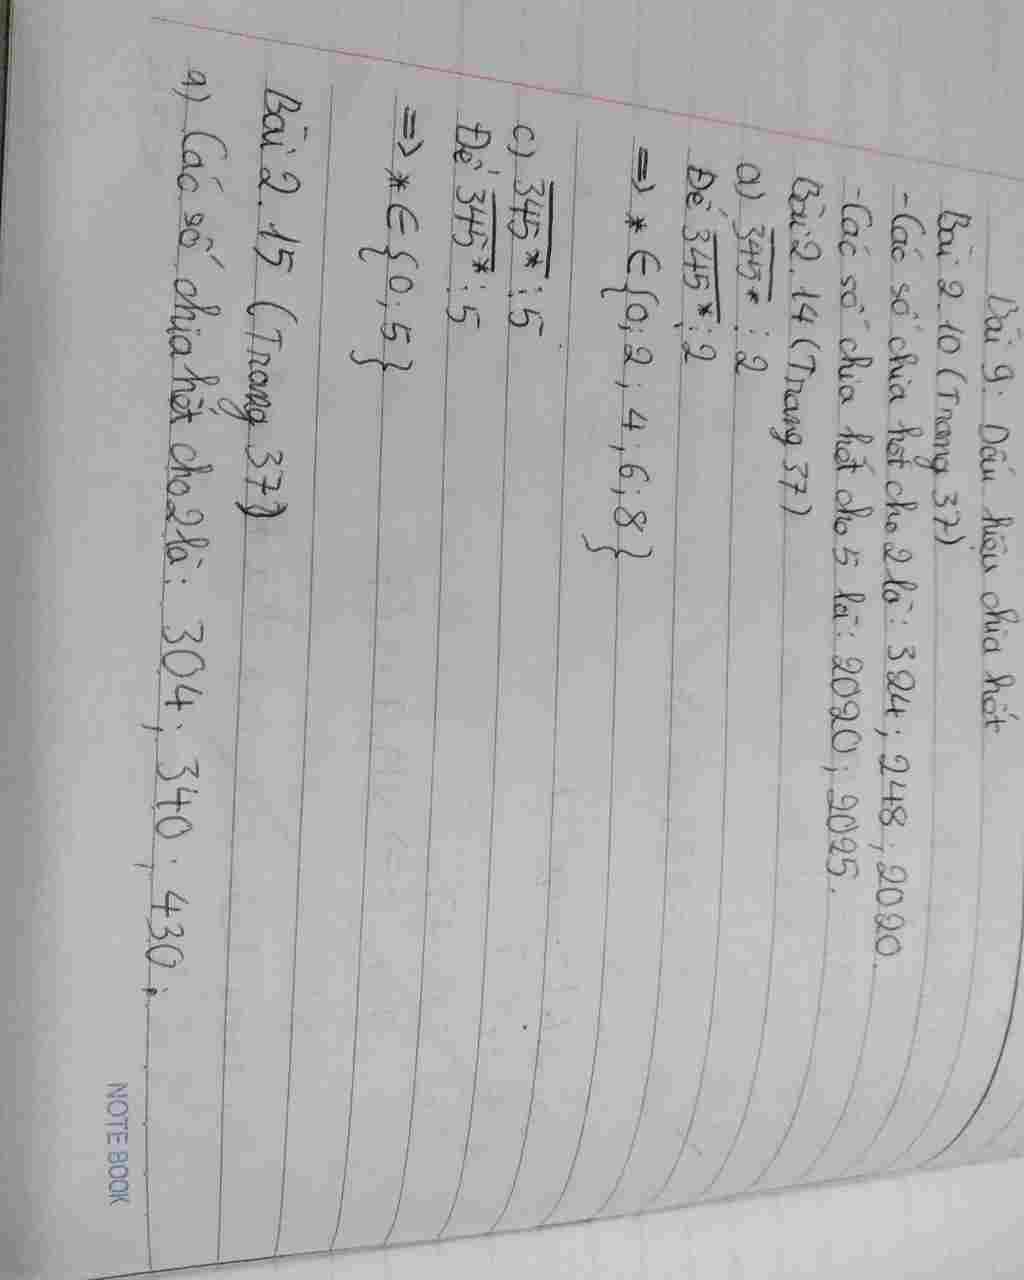 Bài 9: Dấu hiệu chia hết
Bài 2.10 (Trang 37)
- Các số chia hết cho 2 là: 324; 248; 2020.
- Các số chia hết cho 5 là: 2020; 2025.
Bài 2.14 (Trang 37)
a) 345* ⋮ 2
Để 345* ⋮ 2
=> * ∈ {0; 2; 4; 6; 8}
c) 345* ⋮ 5
Để 345* ⋮ 5
=> * ∈ {0; 5}
Bài 2.15 (Trang 37)
a) Các số chia hết cho 2 là: 304; 340; 430;
NOTEBOOK